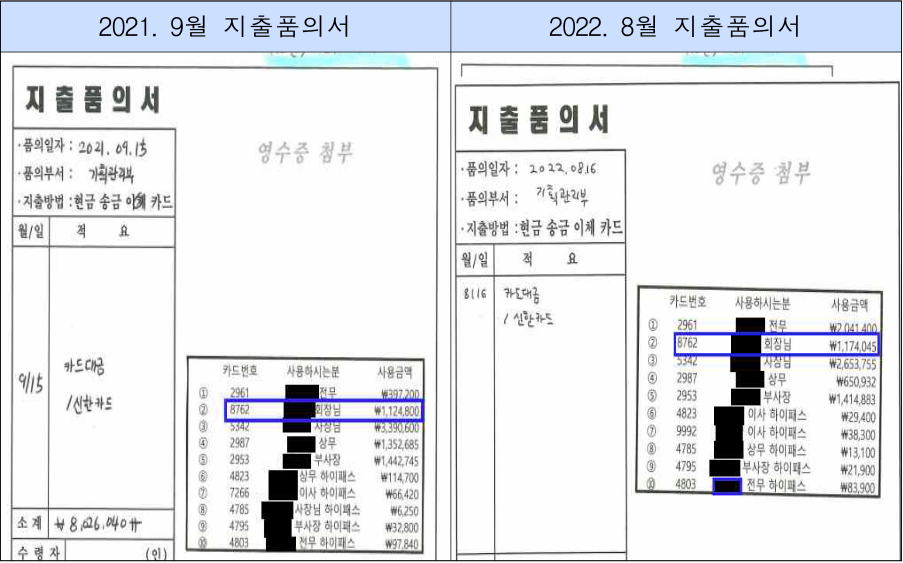 2021. 9월 지출품의서
지출품의서
·품의일자 : 2021. 09.15
·품의부서 : 기획관리부
·지출방법 : 현금 송금 이체 카드
영수증 첨부
월/일 적 요
9/15 카드대금
/신한카드
카드번호 사용하시는분 사용금액
① 2961 전무 ₩397,200
② 8762 회장님 ₩1,124,800
③ 5342 사장님 ₩3,390,600
④ 2987 상무 ₩1,352,685
⑤ 2953 부사장 ₩1,442,745
⑥ 4823 상무 하이패스 ₩114,700
⑦ 7266 이사 하이패스 ₩66,420
⑧ 4785 사장님 하이패스 ₩6,250
⑨ 4795 부사장 하이패스 ₩32,800
⑩ 4803 전무 하이패스 ₩97,840
소계 ₩8,026,040
수령자 (인)
2022. 8월 지출품의서
지출품의서
·품의일자 : 2022.08.16
·품의부서 : 기획관리부
·지출방법 : 현금 송금 이체 카드
영수증 첨부
월/일 적 요
8/16 카드대금
/신한카드
카드번호 사용하시는분 사용금액
① 2961 전무 ₩2,041,400
② 8762 회장님 ₩1,174,045
③ 5342 사장님 ₩2,653,755
④ 2987 상무 ₩650,932
⑤ 2953 부사장 ₩1,414,883
⑥ 4823 이사 하이패스 ₩29,400
⑦ 9992 이사 하이패스 ₩38,300
⑧ 4785 상무 하이패스 ₩13,100
⑨ 4795 부사장 하이패스 ₩21,900
⑩ 4803 전무 하이패스 ₩83,900